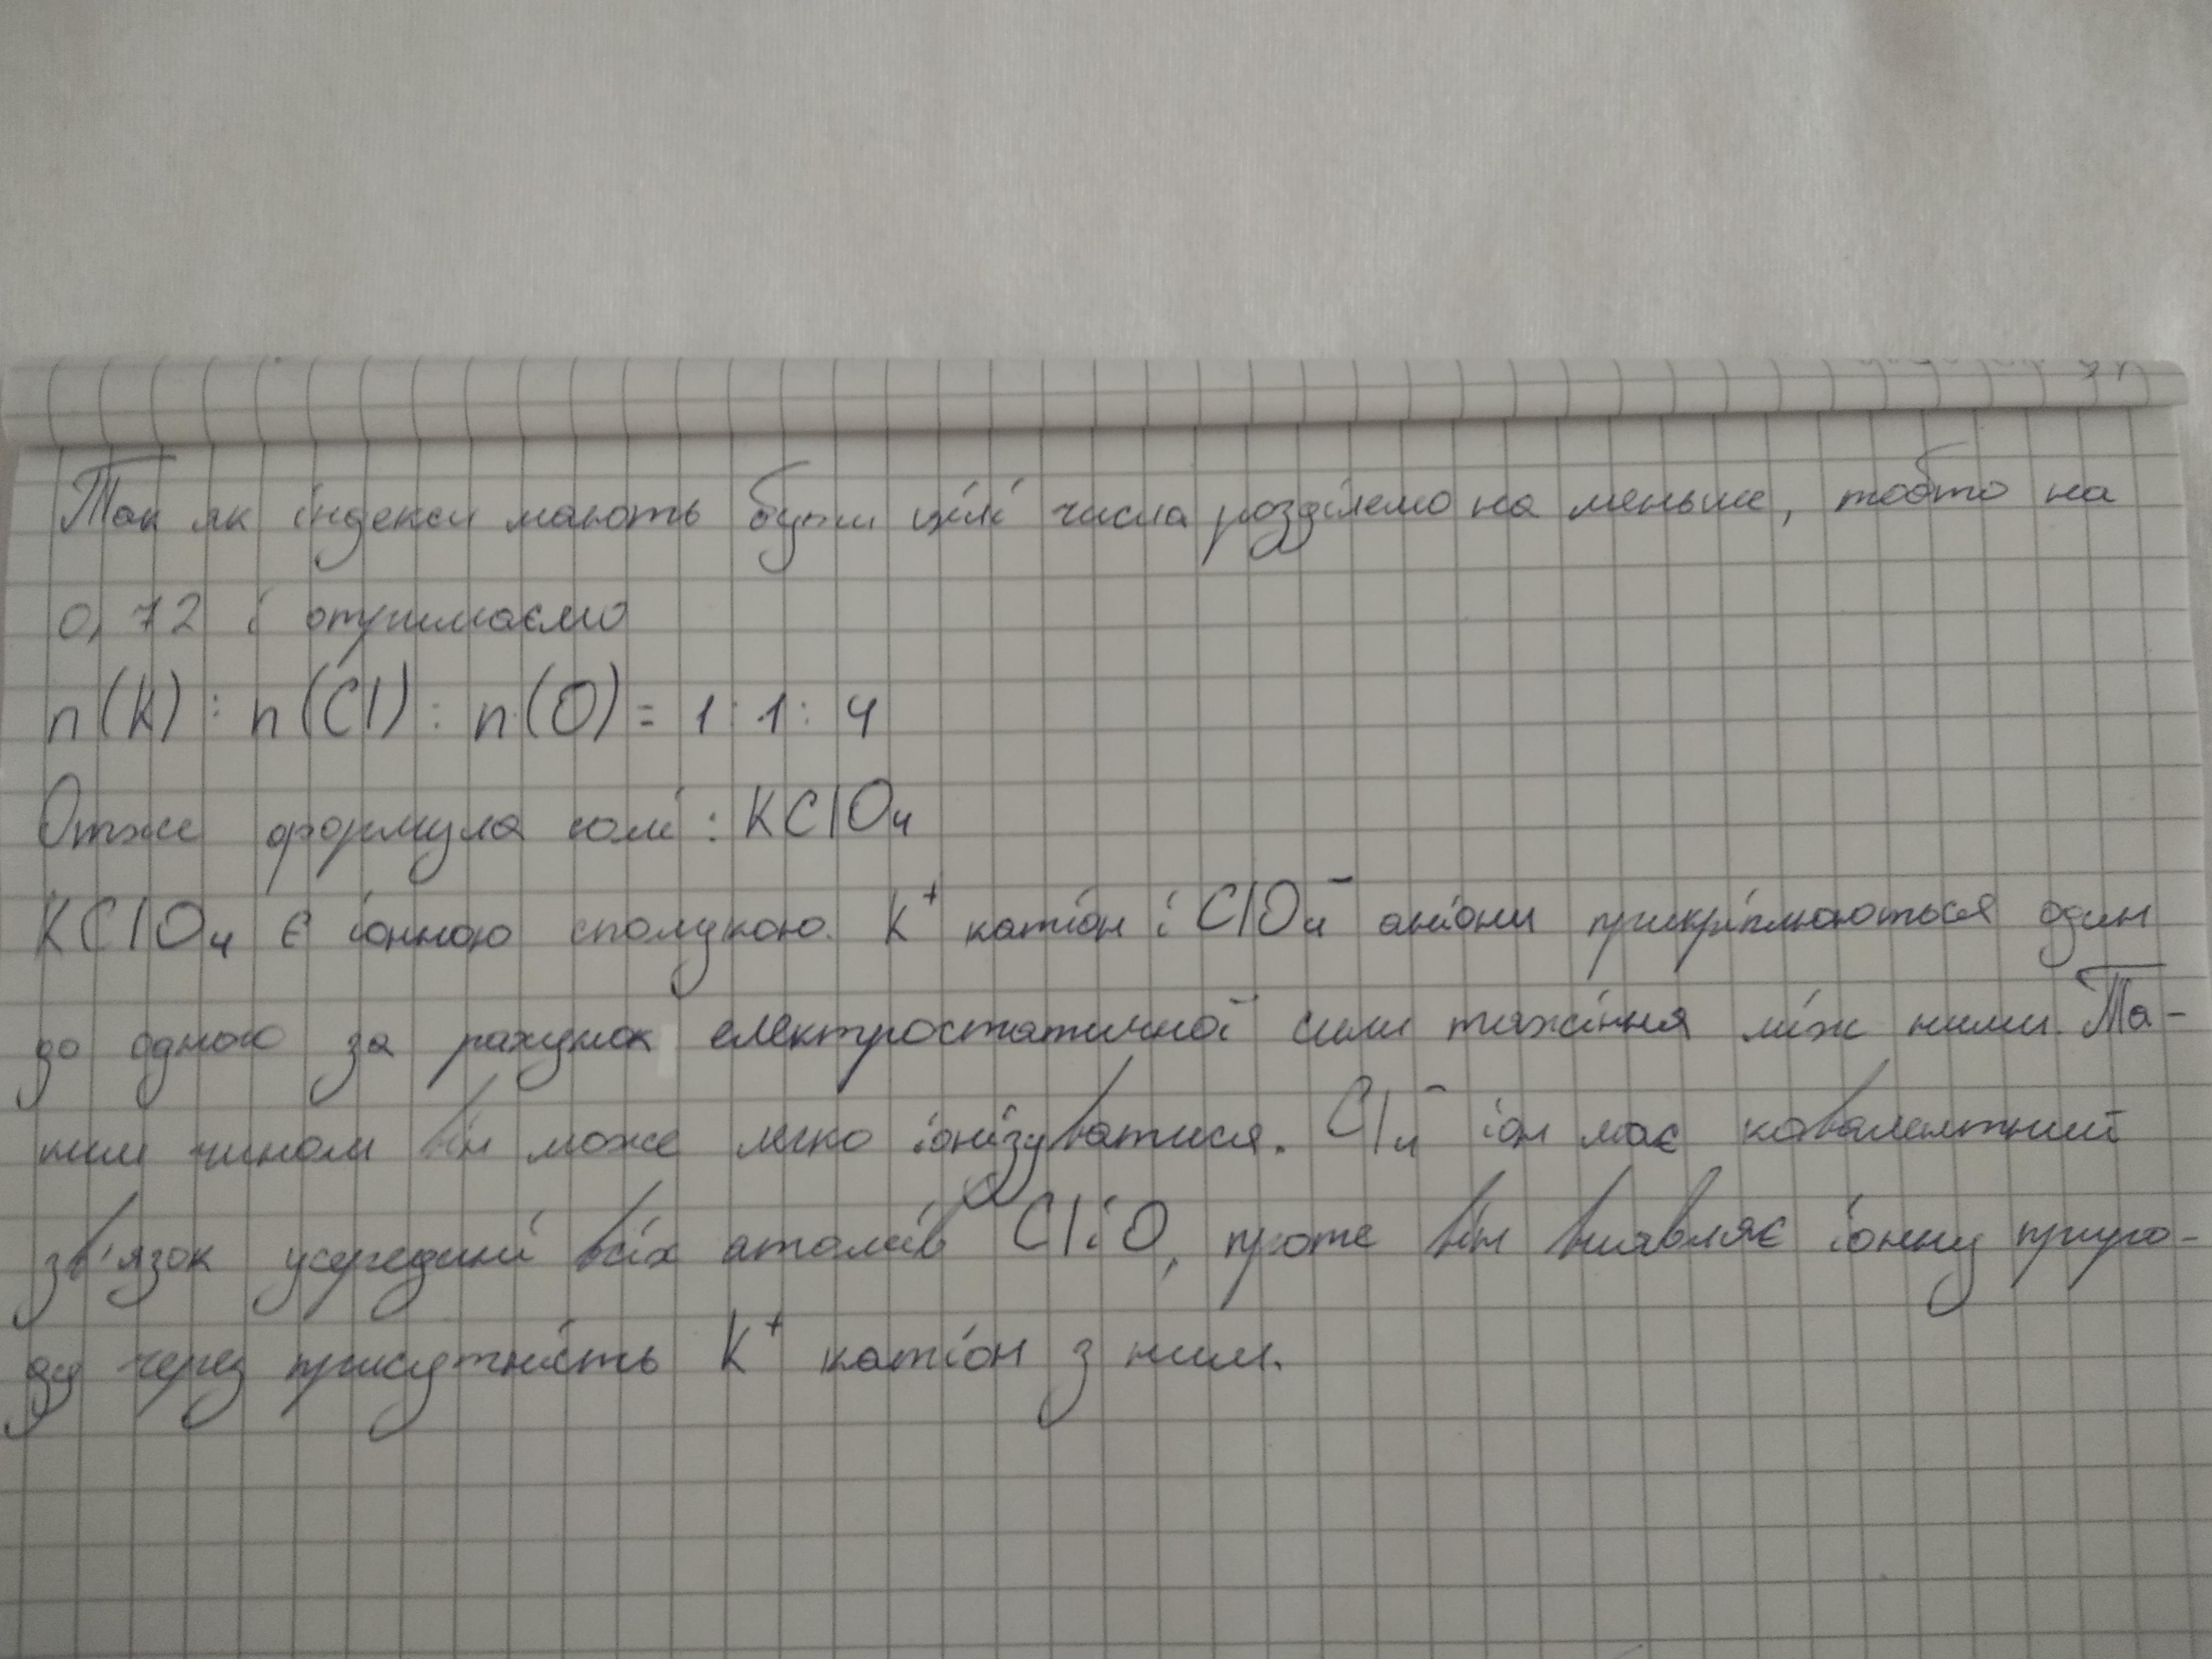 Так як індекси мають бути цілі числа розділемо на меньше, тобто на
0,72 і отримаємо
n(K) : n(Cl) : n(O) = 1 : 1 : 4
Отже формула солі : KClO₄
KClO₄ є іонною сполукою. K⁺ катіон і ClO₄⁻ аніони прикріплюються один
до одного за рахунок електростатичної сили тяжіння між ними. Та-
ким чином він може легко іонізуватися. Cl₄⁻ іон має ковалентний
зв'язок усередині всіх атомів Cl і O, проте він виявляє іонну приро-
ду через присутність K⁺ катіон з ним.